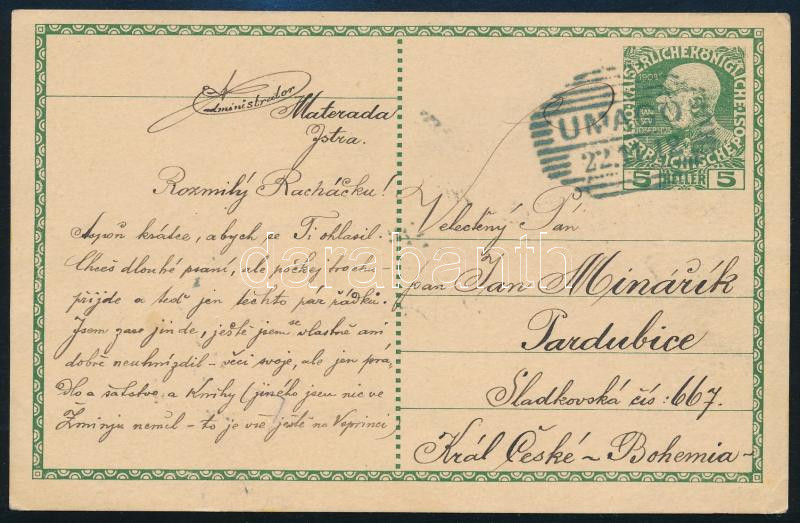 Administrator
Materada
Istra.
Rozmilý Racháčku!
Aspoň krátce, abych se Ti ohlasil.
Chceš dlouhé psaní, ale počkej trochu-
přijde a teď jen těchto par řádků.
Jsem zase jinde, ještě jsem se vlastně ani
dobře neuhnízdil - věci svoje, ale jen prá-
dlo a šatstvo a knihy (jiného jsem nic ve
Žminju neměl - to je vše ještě na Veprinci)
KAISERLICHE KÖNIGLICHE
1908
UMAGO
22.
5 HALLER 5
Velectěný Pán
pan Jan Minářík
Pardubice
Sladkovská čís: 667.
Král České ~ Bohemia-
darabanth